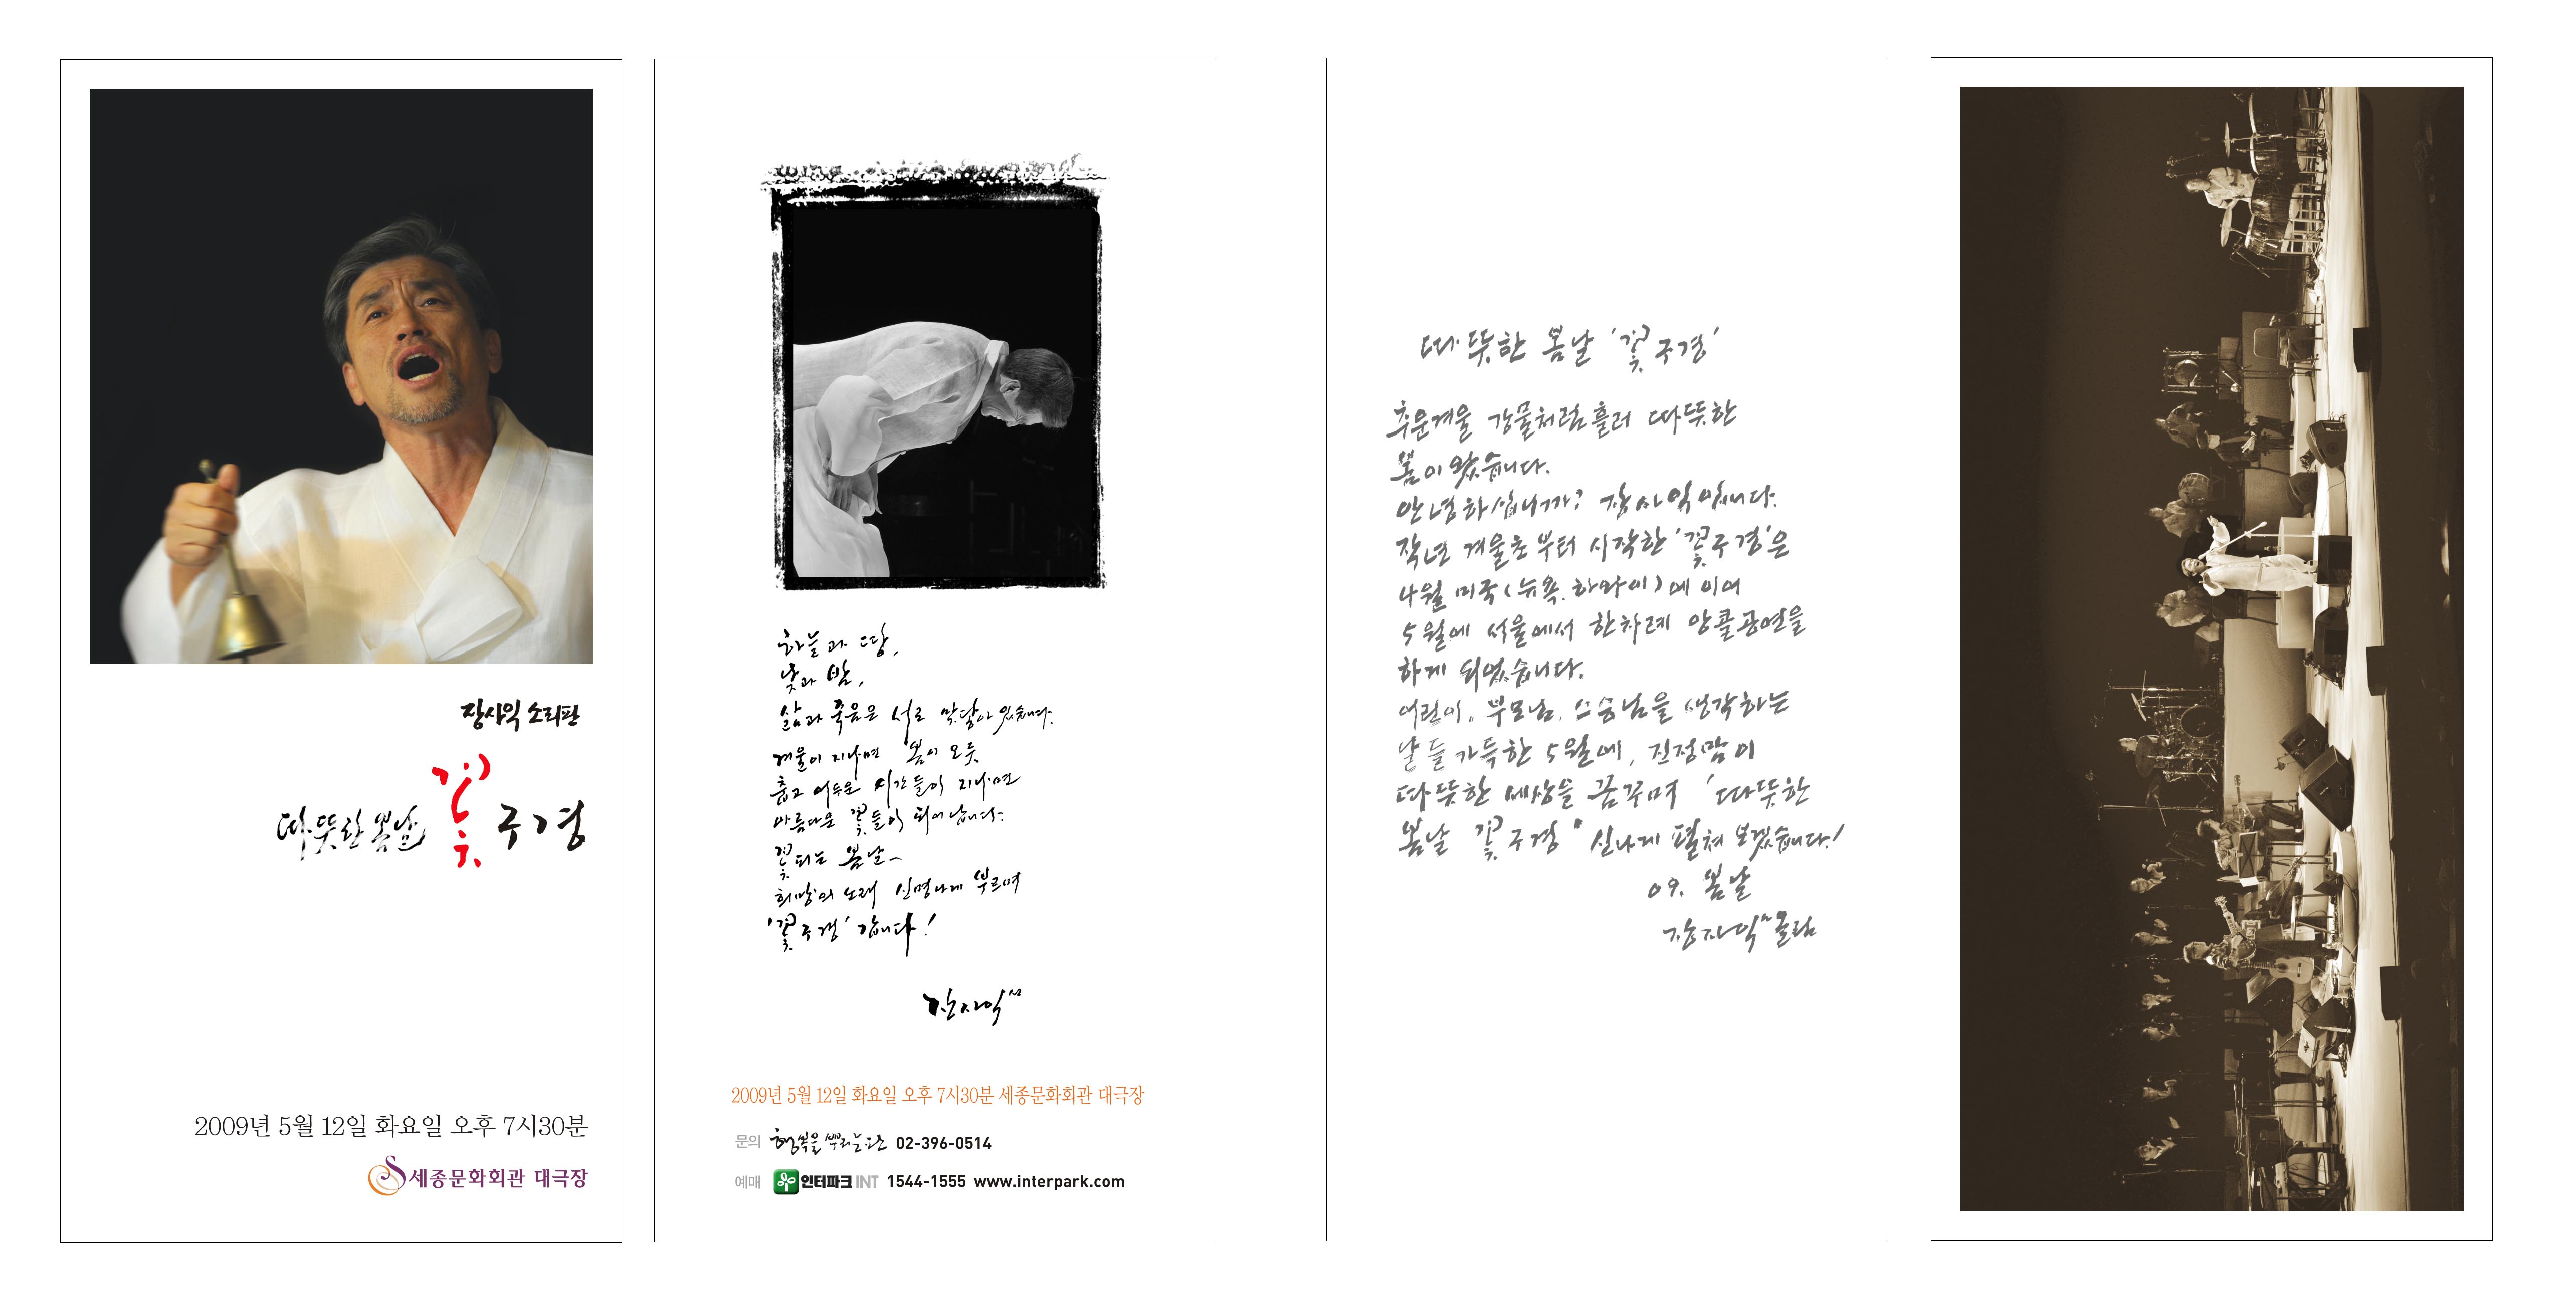 장사익 소리판
따뜻한 봄날 꽃구경
2009년 5월 12일 화요일 오후 7시30분
세종문화회관 대극장
하늘과 땅,
낮과 밤,
삶과 죽음은 서로 맞닿아 있습니다.
겨울이 지나면 봄이 오듯
춥고 어두운 시간들이 지나면
아름다운 꽃들이 되어 납니다.
꽃되는 봄날~
희망의 노래 신명나게 부르며
'꽃구경' 갑니다!
장사익
2009년 5월 12일 화요일 오후 7시30분 세종문화회관 대극장
문의 행복을 뿌리는판 02-396-0514
예매 인터파크 INT 1544-1555 www.interpark.com
따뜻한 봄날 '꽃구경'
추운겨울 강물처럼 흘러 따뜻한
봄이 왔습니다.
안녕하십니까? 장사익 입니다.
작년 겨울초부터 시작한 '꽃구경'은
4월 미국(뉴욕, 하와이)에 이어
5월에 서울에서 한차례 앙콜공연을
하게 되었습니다.
어린이, 부모님, 스승님을 생각하는
날들 가득한 5월에, 진정맘이
따뜻한 세상을 꿈꾸며 '따뜻한
봄날 꽃구경" 신나게 펼쳐 보겠습니다!
09. 봄날
장사익 올림